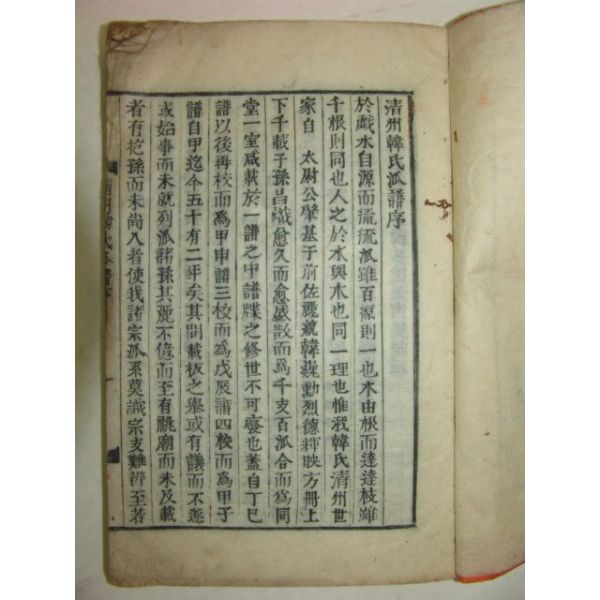 清州韓氏派譜序
於戲水自源而流流派雖百源則一也木由根而達達枝雖
千根則同也人之於水與木也同一理也惟我韓氏清州世
家自 太尉公肇基于前佐麗統韓蕤勳烈德輝映方冊上
下千載子孫昌熾愈久而愈盛散而爲千支百派合而爲同
堂一室咸載於一譜之中譜牒之修世不可廢也蓋自丁巳
譜以後再校而爲甲申譜三校而爲戊辰譜四校而爲甲子
譜自甲迄今五十有二年矣其間載板之擧或有議而不遂
或始事而未就列派諸孫其麗不億而至有祧廟而未及載
者有抱孫而未尚入者使我諸宗派系莫識宗支難辨至若